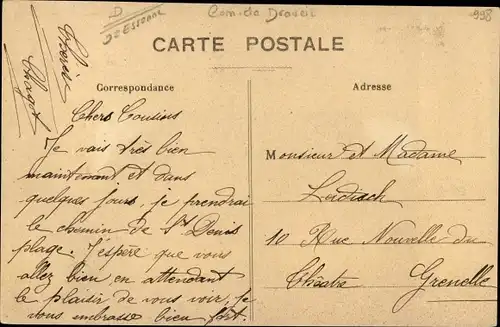 D
D2 Essonne
Com. de Draveil
998
CARTE POSTALE
Correspondance
Adresse
Chers Cousins
Je vais très bien
maintenant et dans
quelques jours, je prendrai
le chemin de St Denis
plage. J'espère que vous
allez bien, en attendant
le plaisir de vous voir, je
vous embrasse bien fort.
Monsieur et Madame
10 Rue Nouvelle du
Théatre Grenelle